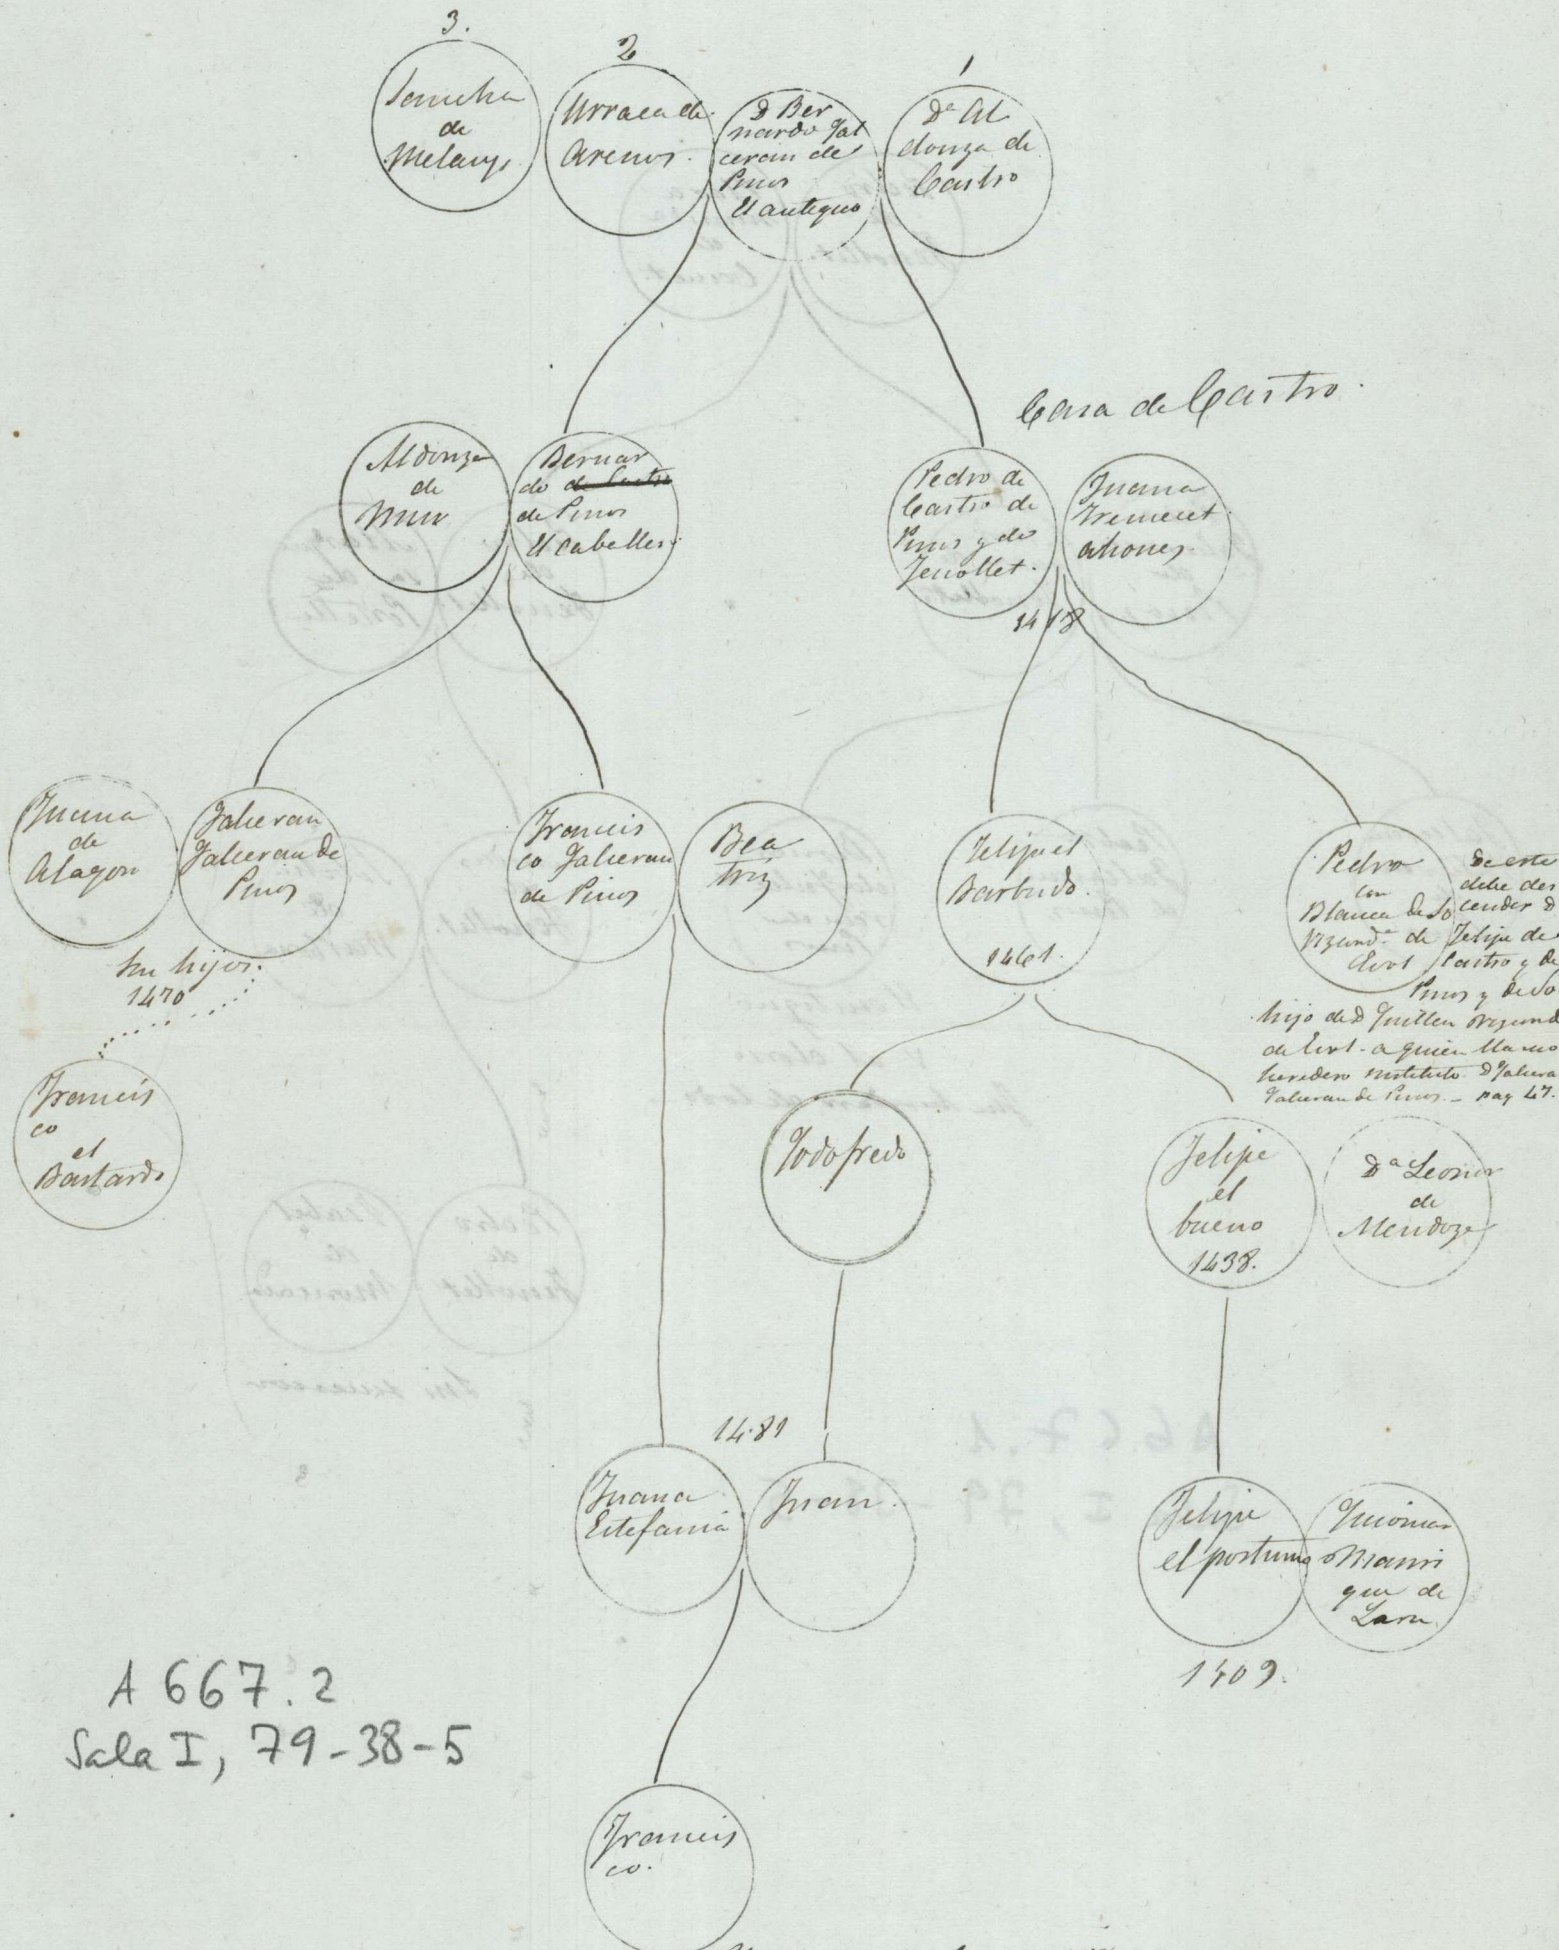 3.
2
1
Sancha
de
Melany
Urraca de
Arenos.
D Ber
nardo Gal
ceran de
Pinos
El antiguo
Dª Al
donza de
Castro
Casa de Castro.
Aldonza
de
Mur
Bernar
do de Castro
de Pinos
El Caballero
Pedro de
Castro de
Pinos y de
Fenollet.
Juana
1418
Juana
de
Alagon
Galceran
Galceran de
Pinos
Sin hijos.
1470
Francis
co
el
Bastardo
Francis
co Galceran
de Pinos
Bea
triz
Felip el
Barbudo.
1461.
Pedro
con
Blanca de So
Vizcondª de
Evol
De este
debe des
cender D
Felipe de
Castro y de
Pinos y de So
hijo de D Guillen Vizcond
de Evol - a quien llamo
heredero D Galcera
Galceran de Pinos. - pag 47.
Godofredo
Felipe
el
bueno
1438.
Dª Leonor
de
Mendoza
1481
Juana
Estefania
Juan.
Felipe
el postumo
Guiomar
Manri
que de
Lara
1509.
Francis
co.
A 667.2
Sala I, 79-38-5